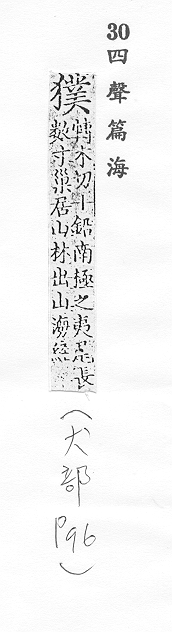 30四聲篇海
獛
博木切｜鉛南極之夷尾長
数寸巢居山林出山海經
（犬部 P96）